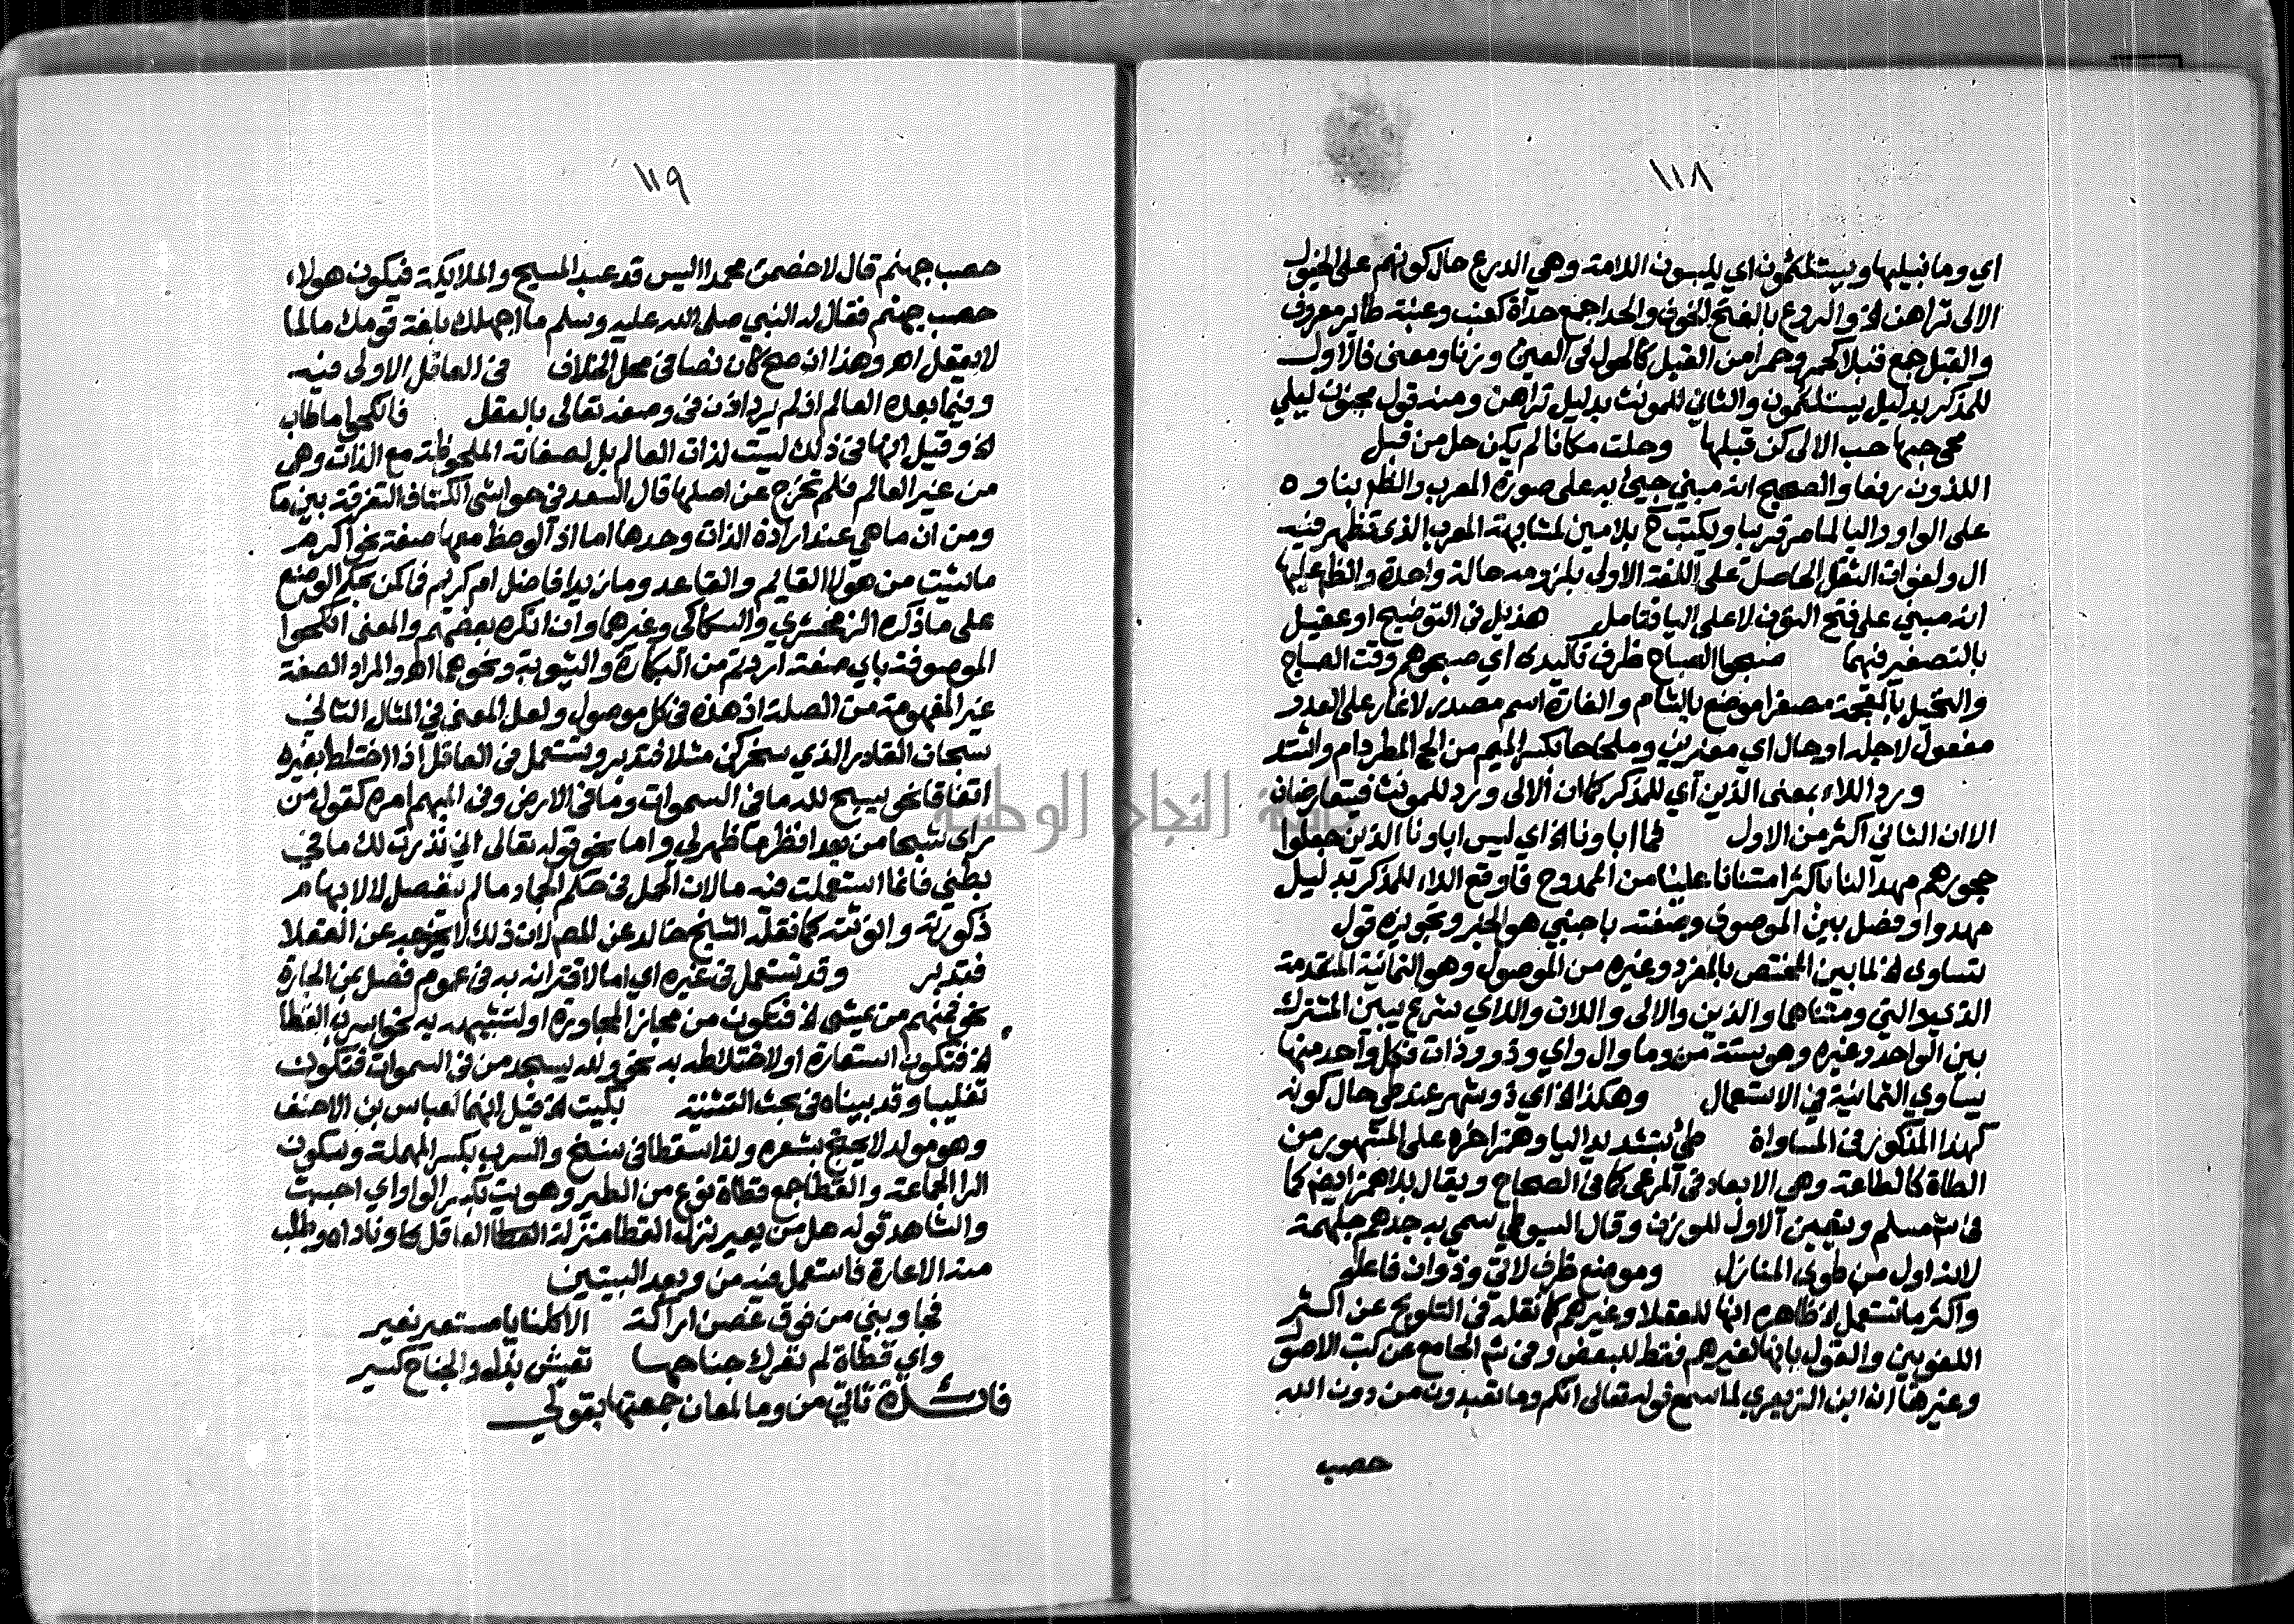 ١١٨
اي وما نبيلها ويستلئمون اي يلبسون اللامة وهي الدرع حال كونهم على الخيول
الالى تراهن الخ والروع بالفتح الخوف والحدا جمع حداة كعنب وعنبة طائر معروف
والقبل جمع قبلا كحمر وحمرا من القبل كالحول في العين وزنا ومعنى فالاول
للمذكر بدليل يستلئمون والثاني للمونث بدليل تراهن ومنه قول مجنون ليلي
محى حبها حب الالى كن قبلها وحلت مكانا لم يكن حل من قبل
اللذون رفعا والصحيح انه مبني جيئ به على صورة المعرب والظ بناوه
على الواو والياء لما مر قريبا ويكتب ح بلامين لمشابهة المعرب الذي تظهر فيه
ال ولفوات الثقل الحاصل على اللغة الاولى بلزومه حالة واحدة والظ عليها
انه مبني على فتح النون لا على اليا فتامل هذيل في التوضيح او عقيل
بالتصغير فيهما صبحوا الصباح ظرف تاكيده اي صبحوهم وقت الصباح
والنخيل بالمعجمة مصغرا موضع بالشام والغارة اسم مصدر لاغار على العدو
مفعول لاجله او حال اي مغيرين وملحاحا بكسر الميم من الح المطر دام واشتد
ورد اللاء بمعنى الذين اي للمذكر كما ان الالى ورد للمونث فيتعارضان
الا ان الثاني اكثر من الاول فما اباونا الخ اي ليس اباونا الذين جعلوا
حجورهم مهدا لنا باكثر امتنانا علينا من الممدوح فاوقع اللاء للمذكر بدليل
مهدوا وفصل بين الموصوف وصفته باجنبي هو الخبر وتجويزه قول
تساوي الخ لما بين المختص بالمفرد وغيره من الموصول وهو الثمانية المتقدمة
الذي والتي ومثناهما والذين والالى واللات واللاي شرع يبين المشترك
بين الواحد وغيره وهو ستة من وما وال واي وذو وذات فكل واحد منها
يساوي الثمانية في الاستعمال وهكذا الخ اي ذو شهر عند طي حال كونه
كهذا المذكور في المساواة طئ بتشديد اليا وهمز اخره على المشهور من
الطاة كالطاعة وهي الابعاد في المرعى كما في الصحاح ويقال بلا همز ايضا كما
في ش مسلم ويتعين الاول للوزن وقال السيوطي سمي به جدهم جلهمة
لانه اول من طوى المنازل وموضع ظرف لاتي وذوات فاعله
واكثر ما تستعمل الخ ظاهره انها للعقلا وغيرهم كما نقله في التلويح عن اكثر
اللغويين والقول بانها لغيرهم فقط للبعض وفي ش الجامع عن كتب الاصول
وغيرها ان ابن الزبعري لما سمع قوله تعالى انكم وما تعبدون من دون الله
حصب
١١٩
حصب جهنم قال لاخصمن محمدا اليس قد عبد المسيح والملايكة فيكون هولاء
حصب جهنم فقال له النبي صلى الله عليه وسلم ما اجهلك بلغة قومك ما لما
لا يعقل اهـ وهذا ان صح كان نصا في محل الخلاف في العاقل الاولى فيه
وفيما بعده العالم اذ لم يرد اذن في وصفه تعالى بالعقل فانكحوا ما طاب
الخ وقيل انها في ذلك ليست لذات العالم بل لصفاته الملحوظة مع الذات وهي
من غير العالم فلم تخرج عن اصلها قال السعد في حواشي الكشاف التفرقة بين ما
ومن ان ما هي عند ارادة الذات وحدها اما اذا لوحظ معها صفة نحو اكرم
ما شئت من هولا القايم والقاعد وما زيد افاضل ام كريم فاكمن بحكم الوضع
على ما ذكره الزمخشري والسكاكي وغيرهما وان انكره بعضهم والمعنى انكحوا
الموصوفة باي صفة اردتم من البكارة والثيوبة ونحوهما اهـ والمراد الصفة
غير المفهومة من الصلة اذ هذه في كل موصول ولعل المعنى في المثال التالي
سبحان القادر الذي سخركن مثلا فتدبر وتستعمل في العاقل اذا اختلط بغيره
اتفاقا نحو يسبح لله ما في السموات وما في الارض وفي المبهم امره كقول من
راى شبحا من بعد انظر ما ظهر لي واما نحو قوله تعالى اني نذرت لك ما في
بطني فانما استعملت فيه ما لان الحمل في حكم الجماد ما لم ينفصل لا لابهام
ذكورته وانوثته كما نقله الشيخ خالد عن المص لان ذلك لا يخرجه عن العقلا
فتدبر وقد تستعمل في غيره اي اما لاقترانه به في عموم فصل بمن الجارة
نحو فمنهم من يمشي الخ فتكون من مجاز المجاورة او لتشبيهه به نحو اسرب القطا
الخ فتكون استعارة او لاختلاطه به نحو ولله يسجد من في السموات فتكون
تغليبا وقد بيناه في بحث التثنية بكيت الخ قيل انهما لعباس بن الاحنف
وهو مولد لا يحتج بشعره ولذا سقطا في نسخ والسرب بكسر المهملة وسكون
الرا الجماعة والقطا جمع قطاة نوع من الطير وهويت بكسر الواو اي احببت
والشاهد قوله هل من يعير نزل القطا منزلة العاقل كما وناداه وطلب
منه الاعارة فاستعمل فيه من وبعد البيتين
فجاوبني من فوق غصن اراكة الا كلنا يا مستعير نعير
واي قطاة لم تعرك جناحها تعيش بذل والجناح كسير
فائدة تاتي من وما لمعان جمعتها بقولي